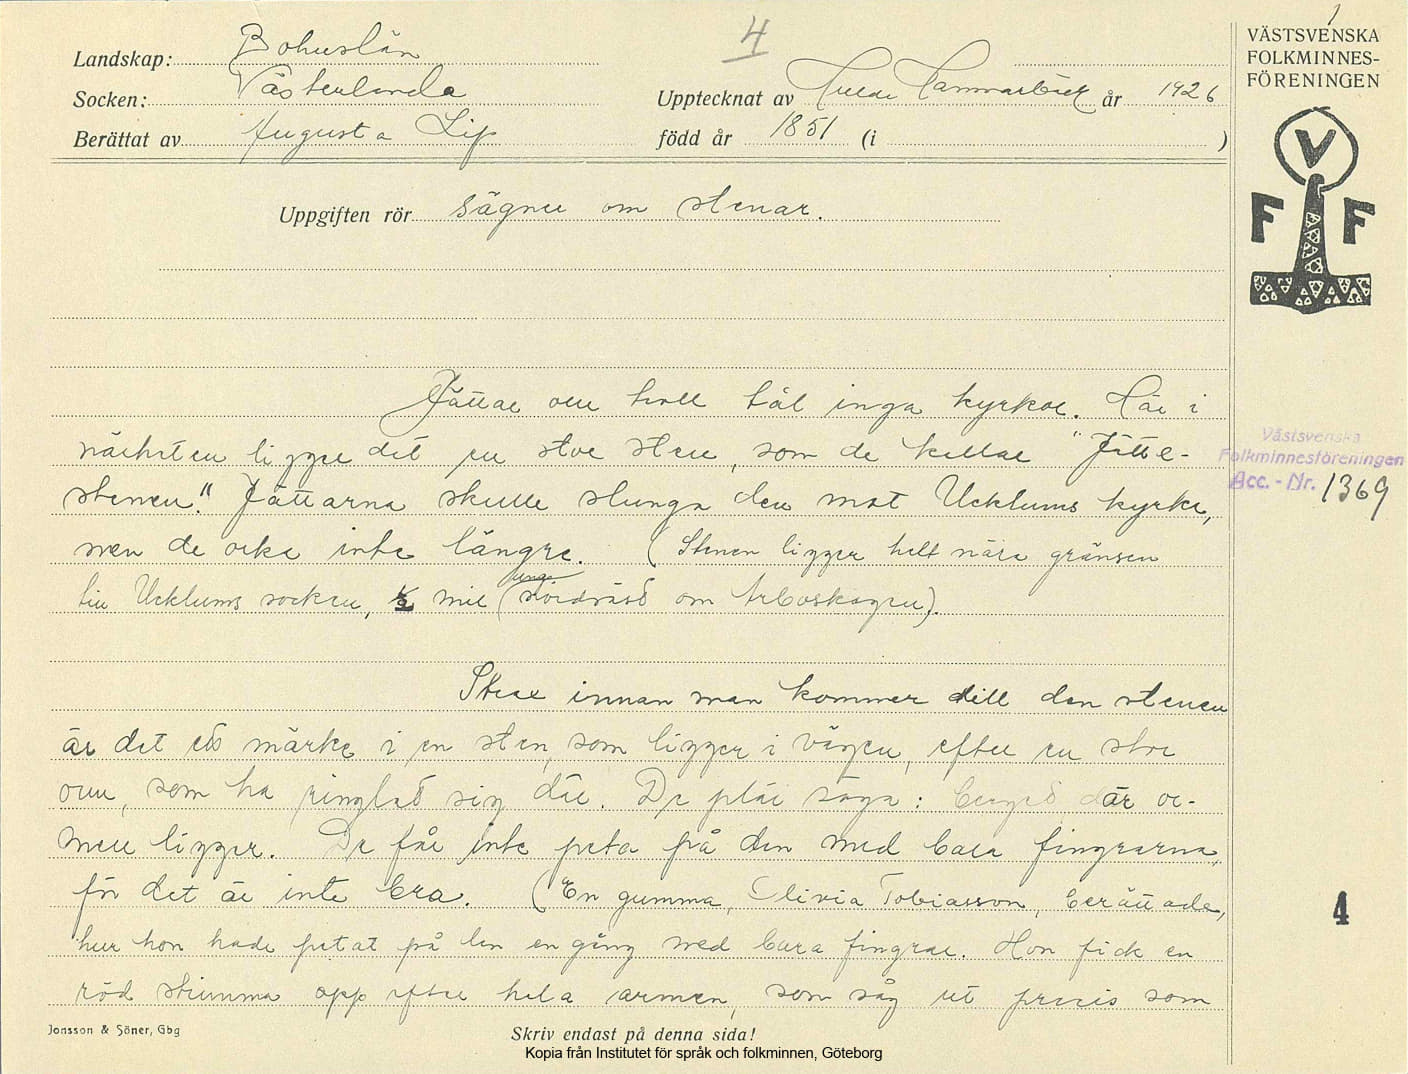 1
4
VÄSTSVENSKA
FOLKMINNES-
FÖRENINGEN
Landskap: Bohuslän
Socken: Västerlanda
Upptecknat av Hammarbäck år 1926
Berättat av Augusta Lif
född år 1851 (i )
V
F F
Uppgiften rör sägner om stenar.
Jättar och troll tål inga kyrkor. Här i
närheten ligger det en stor sten, som de kallar "Jätte-
stenen". Jättarna skulle slunga den mot Ucklums kyrka,
men de orka inte längre. (Stenen ligger helt nära gränsen
till Ucklums socken, ½ mil nordväst om Arboskogen).
Västsvenska
Folkminnesföreningen
Acc.-Nr. 1369
Strax innan man kommer till den stenen
är det ett märke i en sten, som ligger i vägen, efter en stor
orm, som ha ringlat sig där. De plär säga: berget där or-
men ligger. De får inte peta på den med bara fingrarna,
för det är inte bra. (En gumma, Olivia Tobiasson, berättade,
hur hon hade petat på den en gång med bara fingrar. Hon fick en
röd strimma opp efter hela armen, som såg ut precis som
4
Jonsson & Söner, Gbg
Skriv endast på denna sida!
Kopia från Institutet för språk och folkminnen, Göteborg